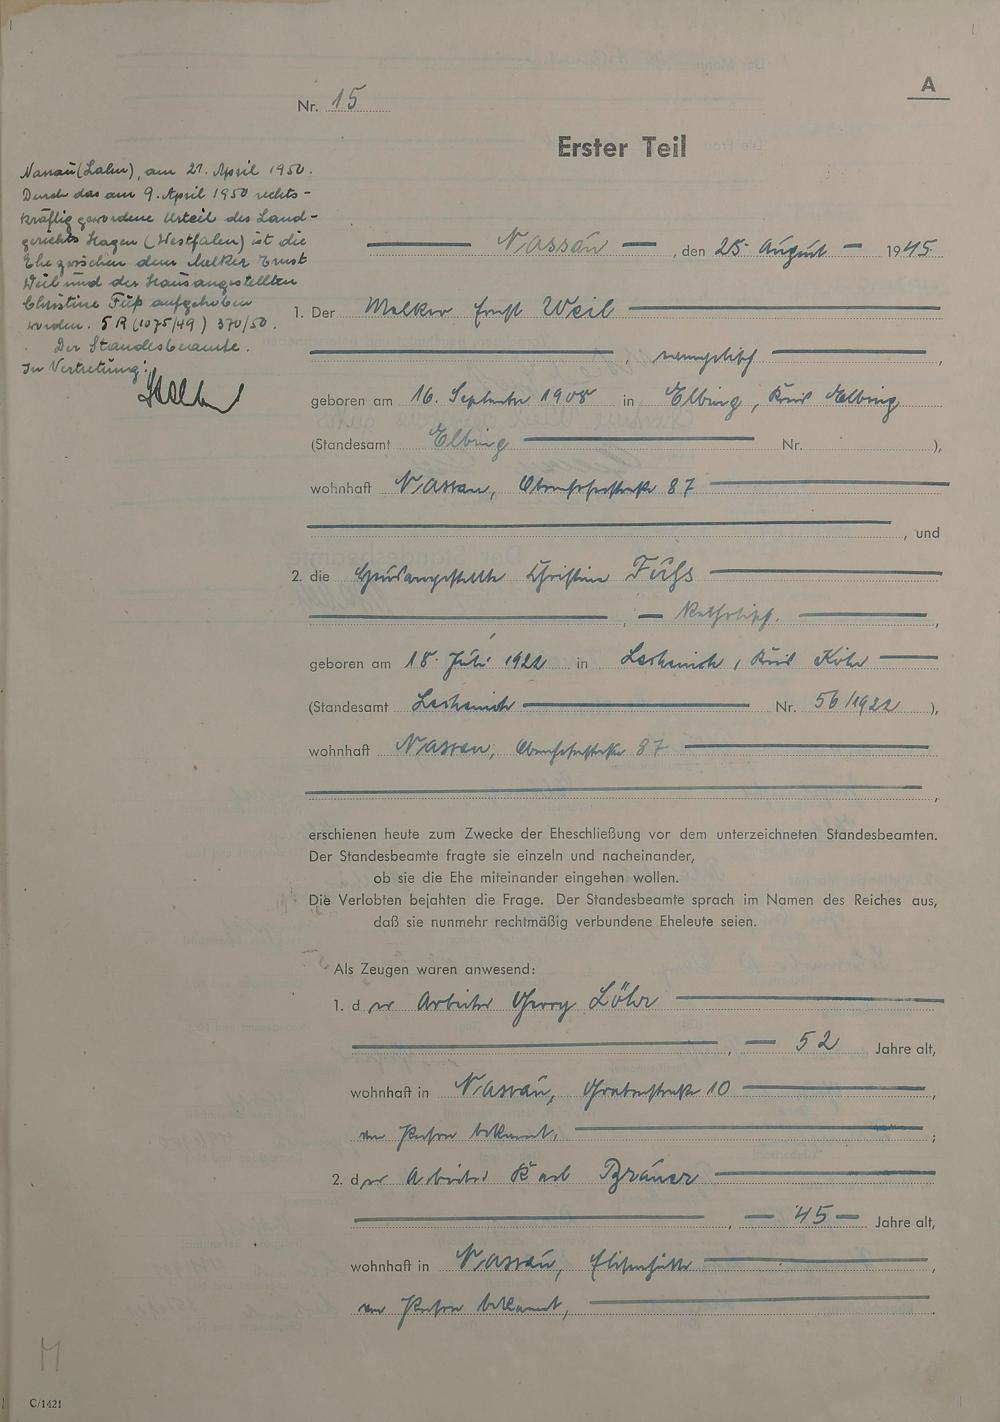 A
Nr. 15
Erster Teil
Nassau (Lahn), am 21. April 1950.
Durch das am 9. April 1950 rechts-
kräftig gewordene Urteil des Land-
gerichts Hagen (Westfalen) ist die
Ehe zwischen dem Melker Ernst
Weil und der Hausangestellten
Christine Füß aufgehoben
worden. 5 R (1075/49) 370/50.
Der Standesbeamte.
In Vertretung:
Nassau, den 25. August 1945
1. Der Melker Ernst Weil
, evangelisch,
geboren am 16. September 1908 in Elbing, Kreis Elbing
(Standesamt Elbing Nr. ),
wohnhaft Nassau, 87
, und
2. die Hausangestellte Christine Füß
, katholisch.,
geboren am 18. Juli 1922 in Lechenich, Kreis Köln
(Standesamt Lechenich Nr. 56/1922 ),
wohnhaft Nassau, 87
,
erschienen heute zum Zwecke der Eheschließung vor dem unterzeichneten Standesbeamten.
Der Standesbeamte fragte sie einzeln und nacheinander,
ob sie die Ehe miteinander eingehen wollen.
Die Verlobten bejahten die Frage. Der Standesbeamte sprach im Namen des Reiches aus,
daß sie nunmehr rechtmäßig verbundene Eheleute seien.
Als Zeugen waren anwesend:
1. der Arbeiter Georg Löhr
, 52 Jahre alt,
wohnhaft in Nassau, Grabenstraße 10,
von Person bekannt, ;
2. der Arbeiter Karl Bräuer
, 45 Jahre alt,
wohnhaft in Nassau, Elisenhütte,
von Person bekannt, .
M
C/1421